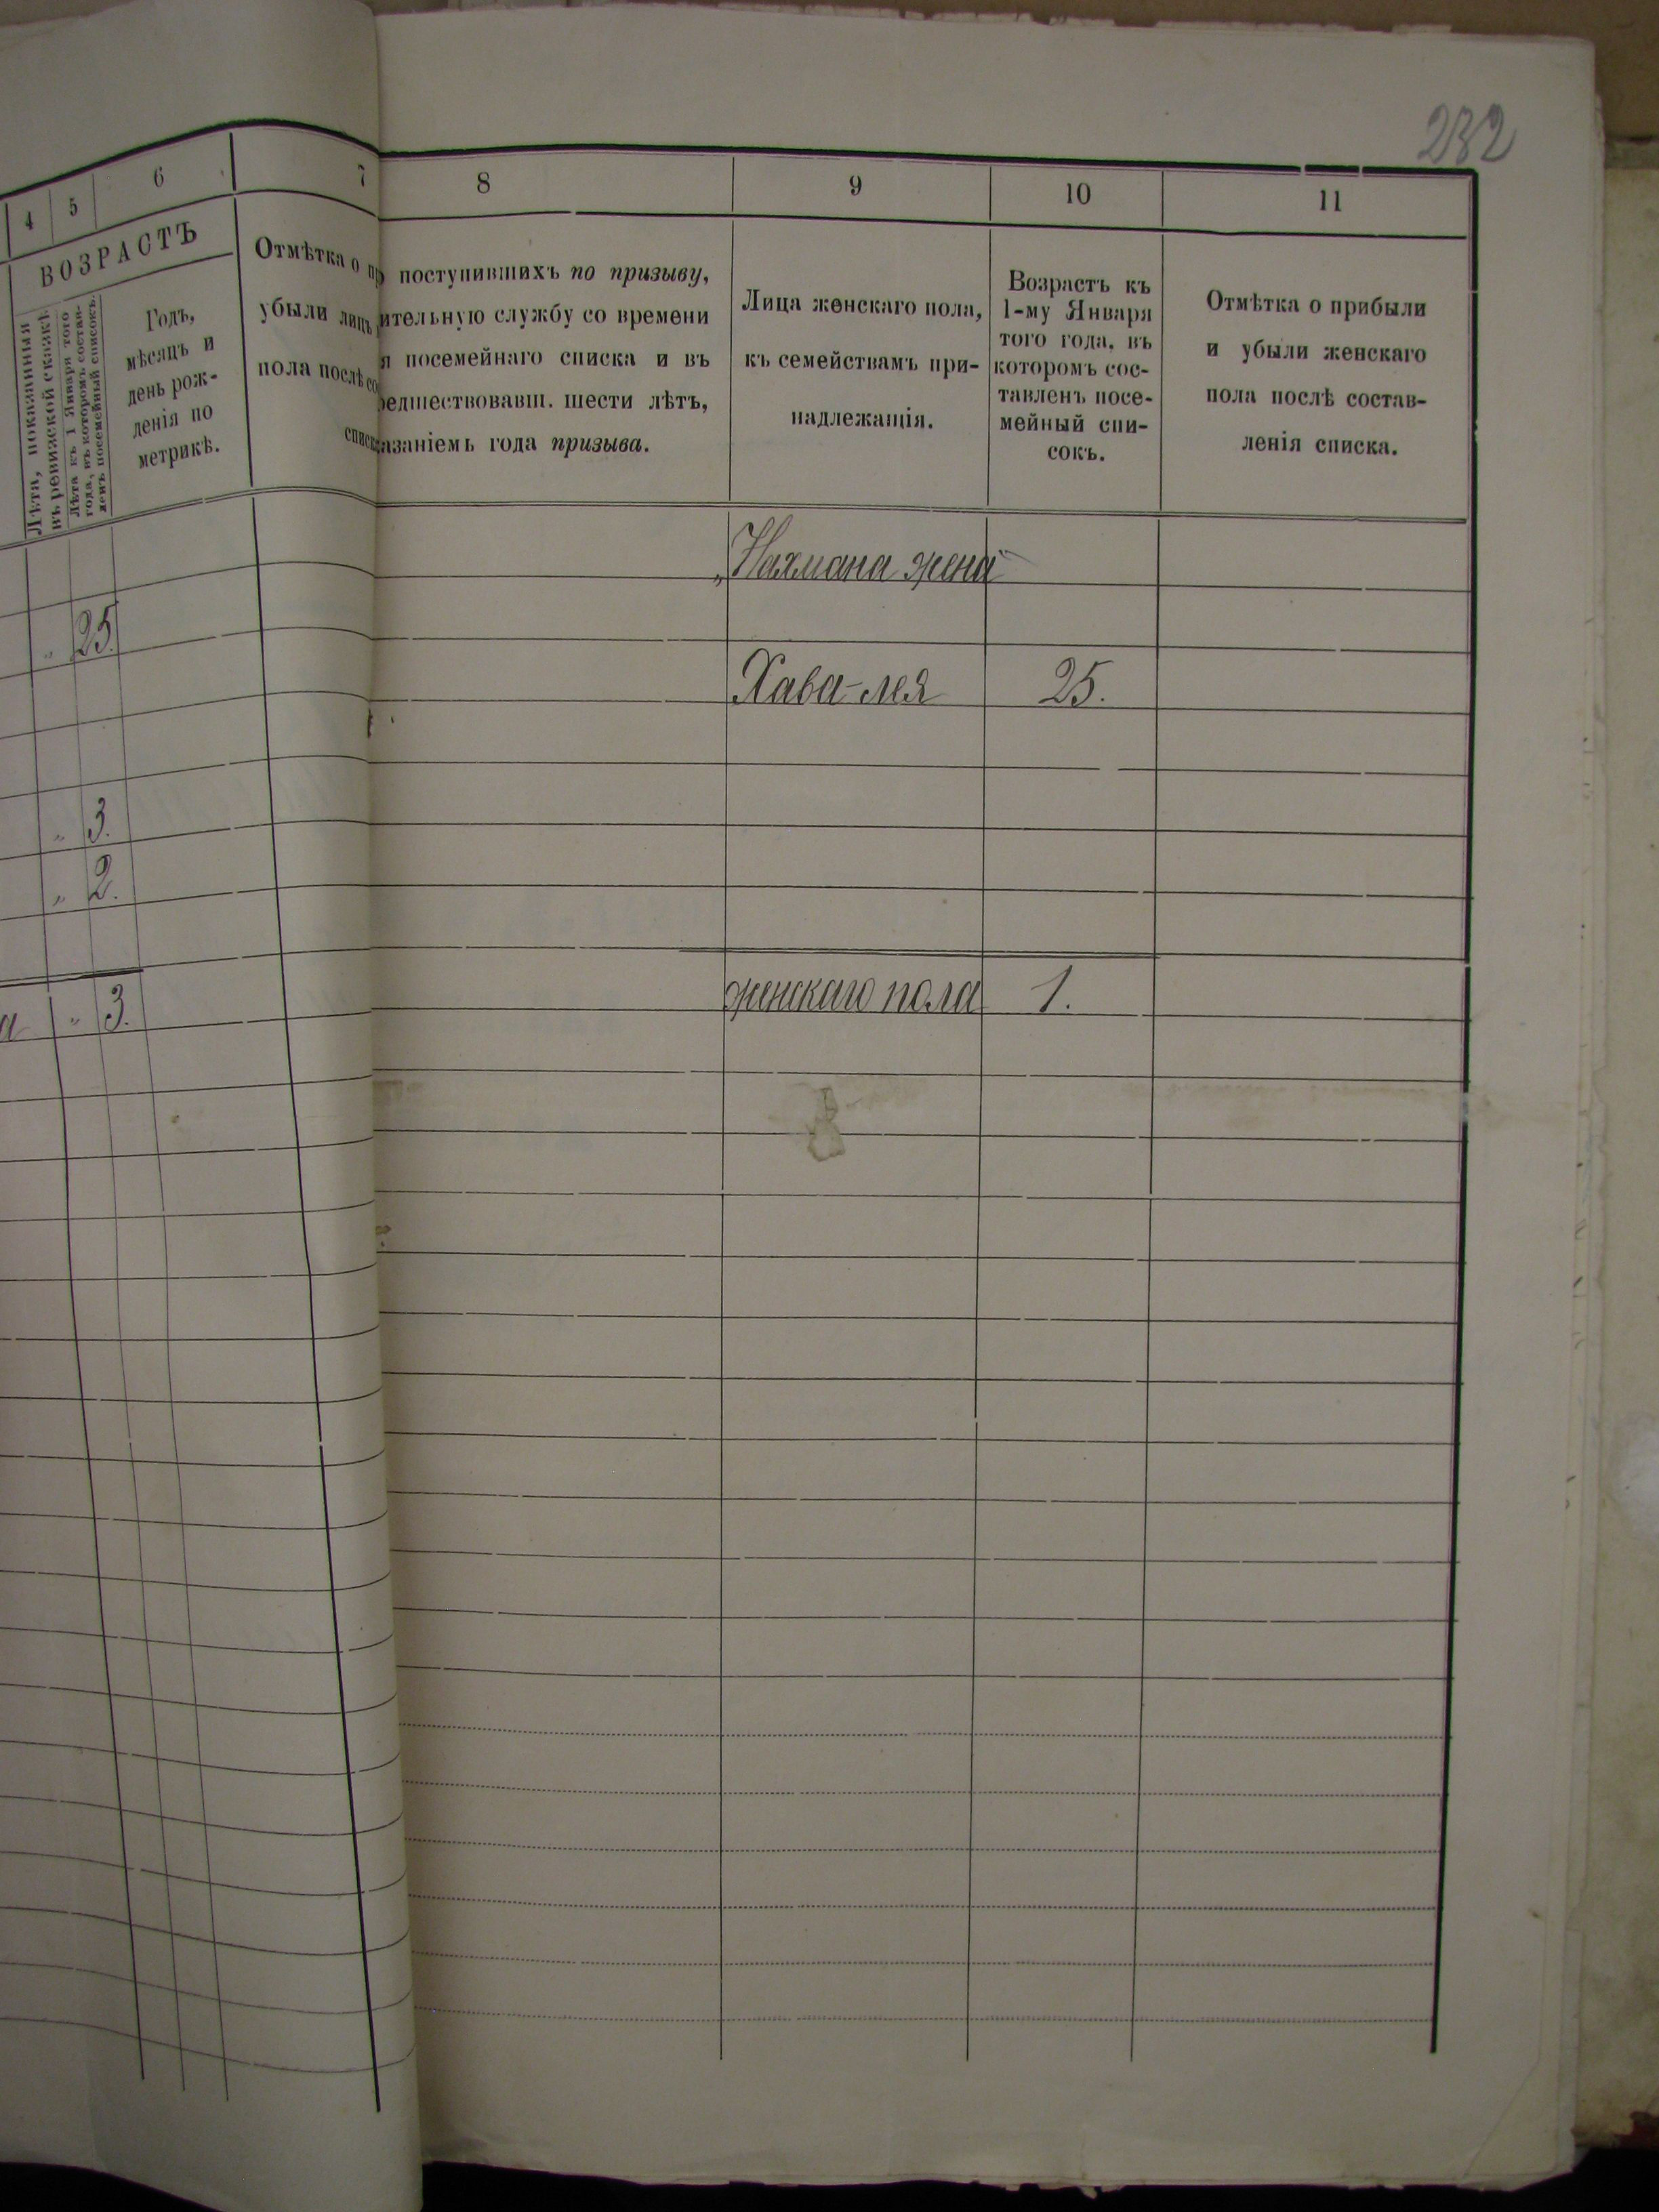 232
4 5 6 7
ВОЗРАСТЪ
Лѣта, показанныя
въ ревизской сказкѣ.
Лѣта къ 1 Января того
года, въ которомъ состав-
ленъ посемейный списокъ.
Годъ,
мѣсяцъ и
день рож-
денія по
метрикѣ.
Отмѣтка о
убыли лицъ
пола послѣ
25.
3.
2.
а " 3.
8 9 10 11
поступившихъ по призыву,
ительную службу со времени
я посемейнаго списка и въ
редшествовавш. шести лѣтъ,
азаніемъ года призыва.
Лица женскаго пола,
къ семействамъ при-
надлежащія.
Возрастъ къ
1-му Января
того года, въ
которомъ сос-
тавленъ посе-
мейный спи-
сокъ.
Отмѣтка о прибыли
и убыли женскаго
пола послѣ состав-
ленія списка.
Нахмана жена
Хава-Лея 25.
женскаго пола 1.